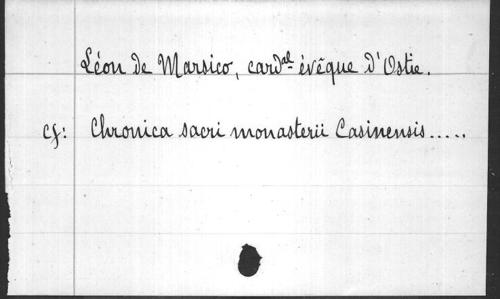 Léon de Marsico, card^al évêque d'Ostie.
cf: Chronica sacri monasterii Casinensis.....